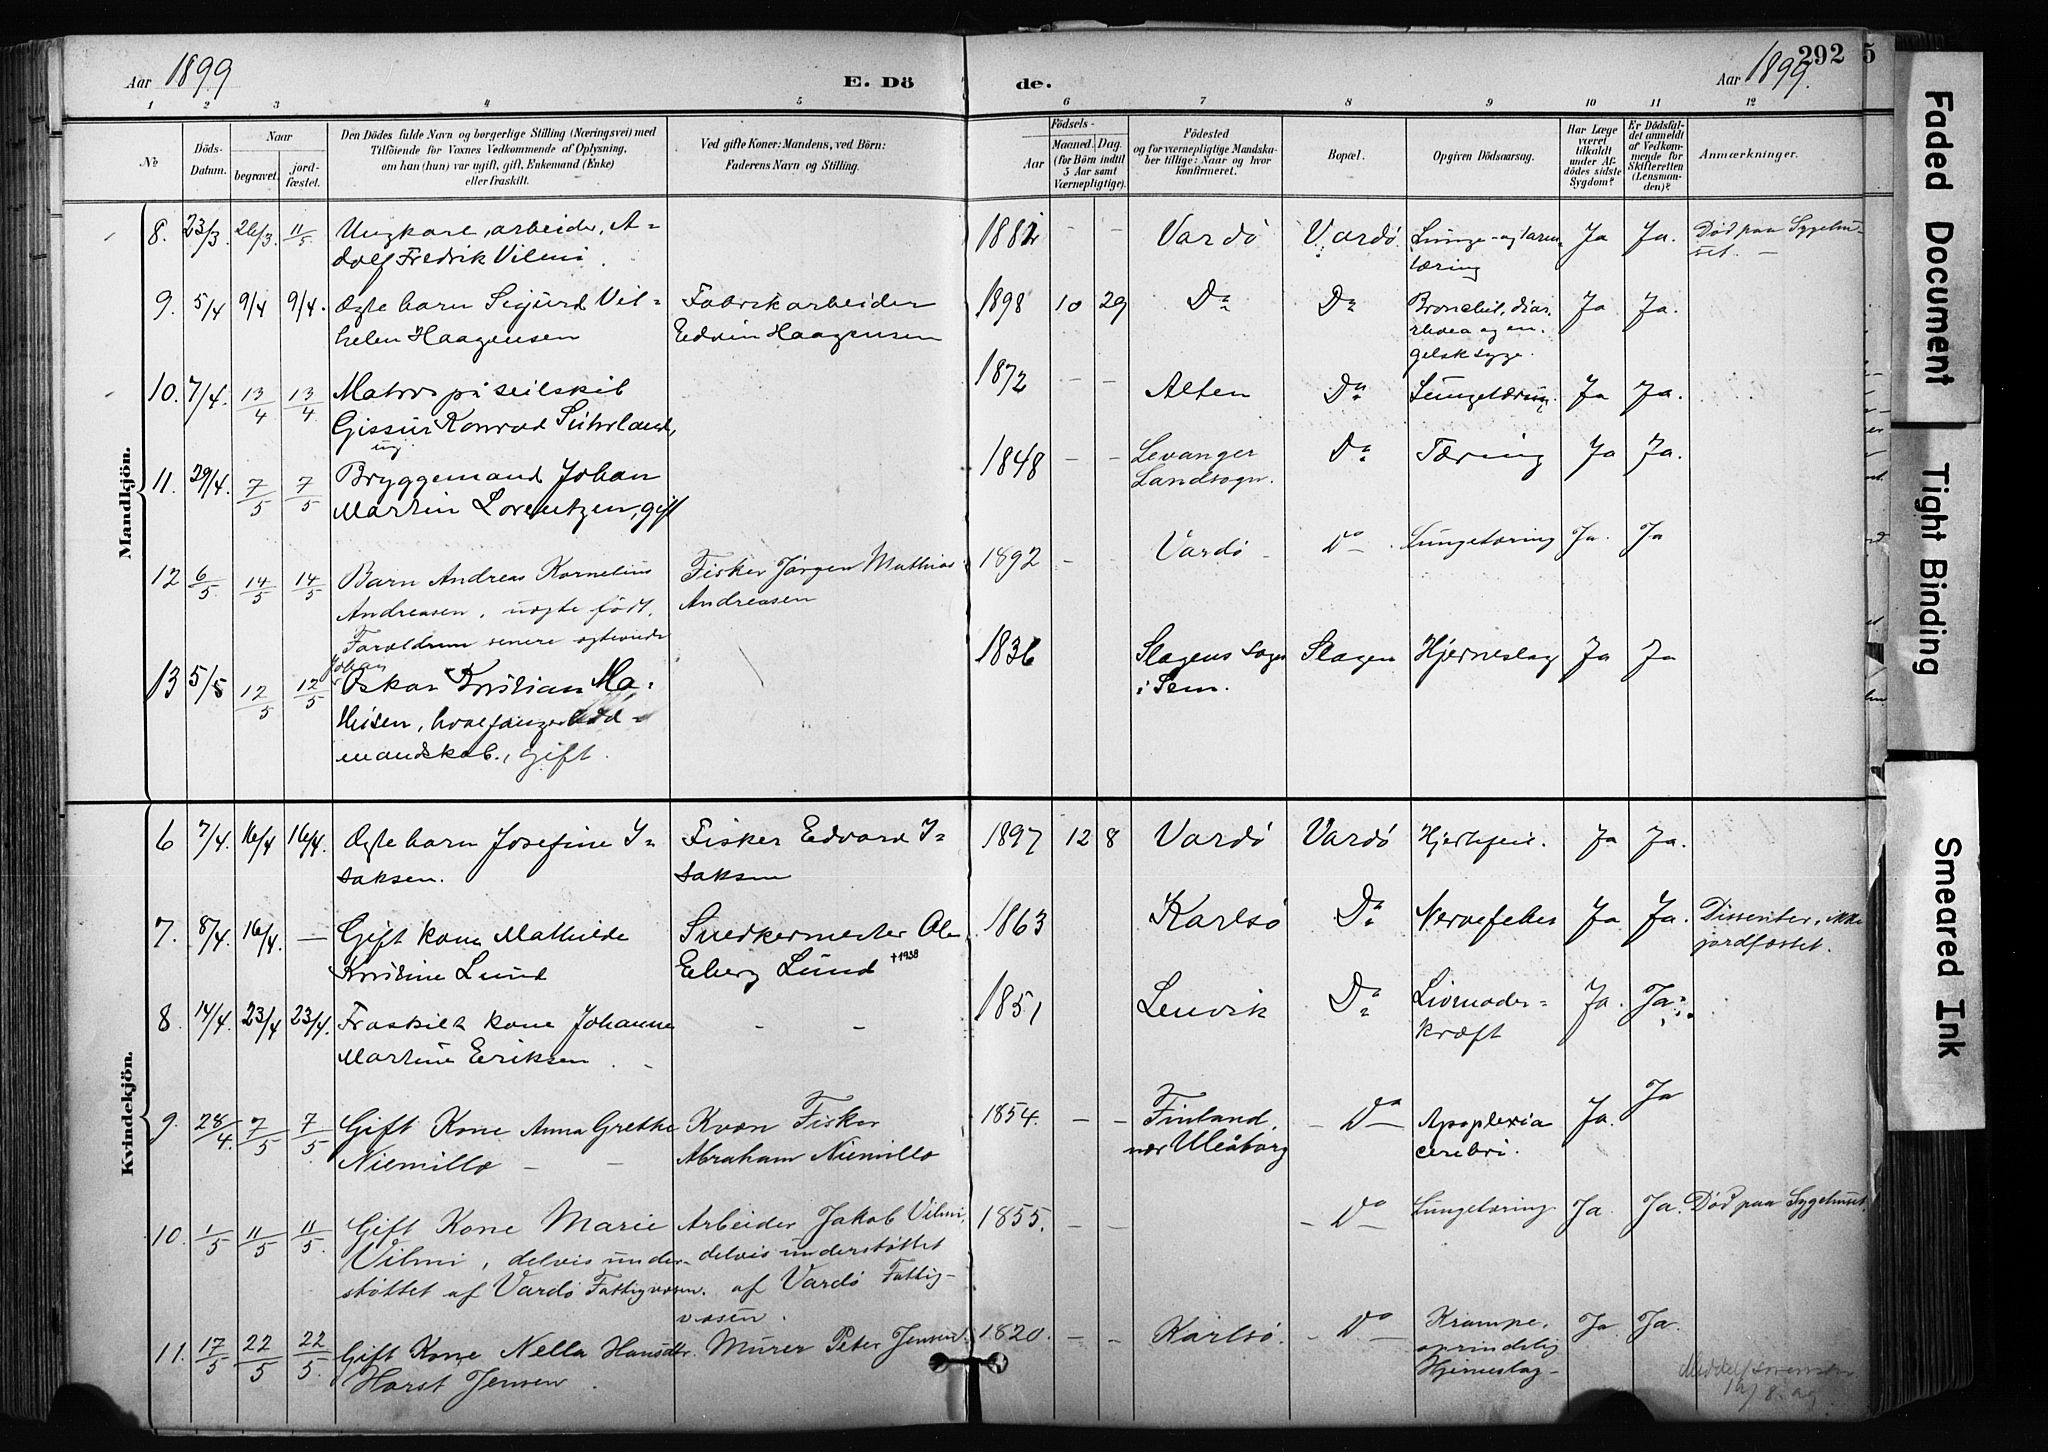 Aar 1899
E. Dö
de.
Aar 1899.
292
5
1 2 3 4 5 6 7 8 9 10 11 12
No
Döds-
Datum.
Naar
begravet.
jord-
fæstet.
Den Dödes fulde Navn og borgerlige Stilling (Næringsvei) med
Tilföiende for Voxnes Vedkommende af Oplysning,
om han (hun) var ugift, gift, Enkemand (Enke)
eller fraskilt.
Ved gifte Koner: Mandens, ved Börn:
Faderens Navn og Stilling.
Födsels-
Aar
Maaned. Dag.
(for Börn indtil
5 Aar samt
Værnepligtige).
Födested
og for værnepligtige Mandska-
ber tillige: Naar og hvor
konfirmeret.
Bopæl.
Opgiven Dödsaarsag.
Har Læge
været
tilkaldt
under Af-
dödes sidste
Sygdom?
Er Dödsfal-
det anmeldt
af Vedkom-
mende for
Skifteretten
(Lensman-
den)?
Anmærkninger.
Mandkjön.
8. 23/3. 26/3. 11/5 Ungkarl, arbeider, A- 1882 - - Vardö Vardö Lunge- og tarm- Ja Ja. Död paa Sygehu-
dolf Fredrik Vilmi. tæring set. -
9. 5/4 9/4 9/4. Ægte barn Sigurd Vil- Fabrikarbeider 1898 10 29 Do Do Bronchit, diar- Ja Ja.
helm Haagensen Edvin Haagensen rhoea og en-
gelsk syge.
10. 7/4. 13/4 13/4 Matros på seilskib 1872 - - Alten Do Lungetæring. Ja Ja.
Gissur Konrad Suhrland,
ug.
11. 29/4. 7/5 7/5 Bryggemand Johan 1848 - - Levanger Do Tæring Ja Ja.
Martin Lorentzen, gift Landsogn.
12 6/5 14/5 14/5 Barn Andreas Kornelius Fisker Jörgen Mathias 1892 - - Vardö - Do Lungetæring Ja. Ja
Andreasen, uægte födt. Andreasen
Foræeldrene senere ægteviede
13 5/5 12/5 12/5 Johan Oskar Kristian Ma- 1836 Slagens Sogn Slagen Hjerneslag Ja Ja
thisen, hvalfanger i Sem.
mandskab., gift.
Kvindekjön.
6 7/4. 16/4 16/4. Ægte barn Josefine I- Fisker Edvard I- 1897 12 8 Vardö Vardö Hjertefeil. Ja Ja.
saksen. saksen
7. 8/4. 16/4. - Gift kone Mathilde Snedkermester Ole 1863 Karlsö Do Nervefeber Ja Ja. Dissenter, ikke
Kristine Lund Eberg Lund †1938 jordfæstet.
8. 14/4. 23/4 23/4. Fraskilt kone Johanne - - 1851 Lenvik Do Livmoder- Ja. Ja.
Martine Eriksen kræft
9. 28/4 7/5 7/5 Gift Kone Anna Grethe Kvæn Fisker 1854. - - Finland, - Do Apoplexia Ja. Ja
Niemillo - - Abraham Niemillo nær Uleåborg cerebri.
10. 1/5 11/5 11/5. Gift Kone Marie Arbeider Jakob Vilmi, 1855. - - - Do Lungetæring Ja. Ja. Död paa Sygehuset.
Vilmi, delvis under- delvis understöttet
støttet af Vardö Fattigvæsen. af Vardö Fattig-
væsen.
11. 17/5 22/5 22/5. Gift Kone Nella Hansdtr. Murer Peter Jensen 1820. - - Karlsö. - Do Krampe, Ja. Ja.
Horst Jensen. oprindelig
Hjerneslag-
Faded Document
Tight Binding
Smeared Ink